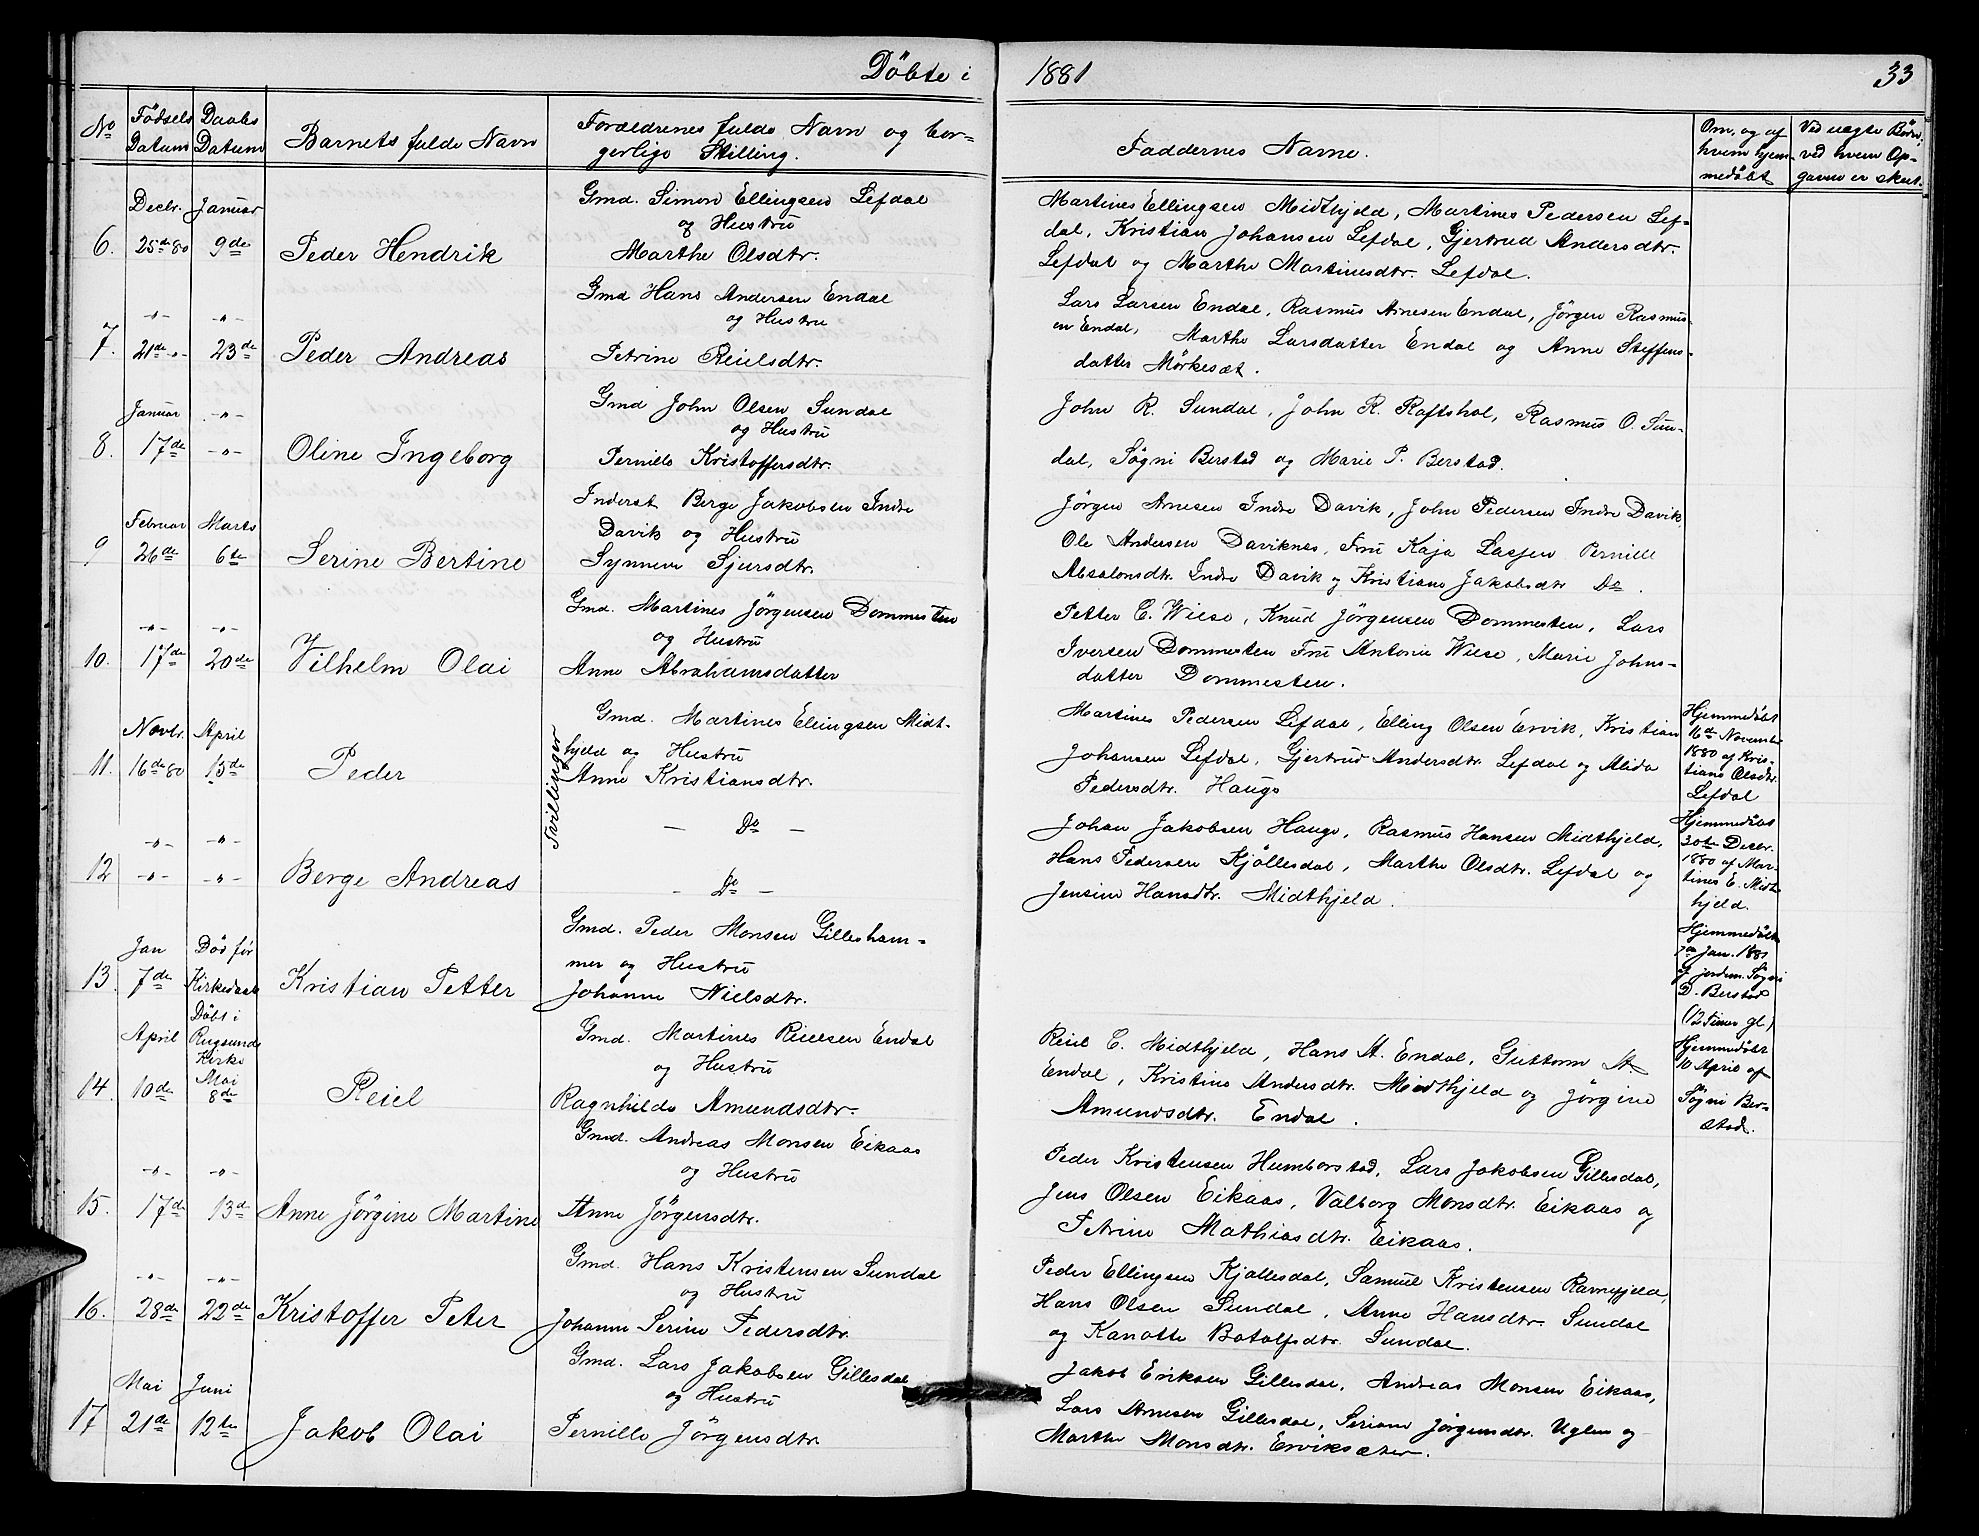 Döbte i 1881 33
No Födsels Datum Daabs Datum Barnets fulde Navn Forældrenes fulde Navn og bor-
gerlige Stilling. Faddernes Navne. Om, og af hvem hjem-
medöbt Ved uægte Börn, ved hvem Op-
gaven er skeet.
Decbr. Januar
6. 25de 80 9de Peder Hendrik
Gmd. Simon Ellingsen Lefdal
og Hustru
Marthe Olsdtr.
Martines Ellingsen Midthjeld, Martines Pedersen Lef-
dal, Kristian Johansen Lefdal, Gjertrud Andersdtr.
Lefdal og Marthe Martinesdtr. Lefdal.
-"- -"-
7. 21de -"- 23de Peder Andreas
Gmd Hans Andersen Endal
og Hustru
Petrine Reielsdtr.
Lars Larsen Endal, Rasmus Arnesen Endal, Jörgen Rasmus-
en Endal, Marthe Larsdatter Endal og Anne Steffens-
datter Mörkesæt.
Januar -"-
8. 17de -"- Oline Ingeborg
Gmd John Olsen Sundal
og Hustru
Pernille Kristoffersdtr.
John R. Sundal, John R. Raftshol, Rasmus O. Sun-
dal, Sögni Berstad og Marie P. Berstad.
Februar Marts
9 26de 6te Serine Bertine
Inderst Berge Jakobsen Indre
Davik og Hustru
Synneve Sjursdtr.
Jörgen Arnesen Indre Davik, John Pedersen Indre Davik
Ole Andersen Daviknes, Fru Kaja Lassen Pernille
Absalonsdtr. Indre Davik og Kristiane Jakobsdtr Do.
-"- -"-
10. 17de 20de Vilhelm Olai
Gmd. Martines Jörgensen Dommesten
og Hustru
Anne Abrahamsdatter
Petter C. Wiese, Knud Jörgensen Dommesten, Lars
Iversen Dommesten Fru Antonie Wiese, Marie Johns-
datter Dommesten.
Novbr. April
11. 16de 80 15de Peder
Tvillinger
Gmd. Martines Elingsen Midt-
hjeld og Hustru
Anne Kristiansdtr.
Martines Pedersen Lefdal, Elling Olsen Ervik, Kristian
Johansen Lefdal, Gjertrud Andersdtr. Lefdal og Alida
Pedersdtr. Hauge
Hjemmedöbt
16de November
1880 af Kris-
tiane Olsdtr.
Lefdal
-"- -"-
12 -"- -"- Berge Andreas
— Do —
— Do —
Johan Jakobsen Hauge, Rasmus Hansen Midthjeld,
Hans Pedersen Kjöllesdal, Marthe Olsdtr. Lefdal og
Jensine Hansdtr. Midthjeld.
Hjemmedöbt
30te Decbr.
1880 af Mar-
tines E. Midt-
hjeld.
Jan Död før
13. 7de Kirkedaab Kristian Petter
Gmd. Peder Monsen Gillesham-
mer og Hustru
Johanne Nielsdtr.
Hjemmedöbt
7de Jan. 1881
af jordem. Sögni
D. Berstad
(12 Timer gl.)
April Döbt i
Rugsunds
Kirke
Mai
14. 10de 8de Reiel
Gmd. Martines Reielsen Endal
og Hustru
Ragnhilde Amundsdtr.
Reiel C. Midthjeld, Hans A. Endal, Guttorm A
Endal, Kristine Andersdtr. Midthjeld og Jörgine
Amundsdtr. Endal.
Hjemmedöbt
10 April af
Sögni Ber-
stad.
-"- -"-
15. 17de 13de Anne Jörgine Martine
Gmd. Andreas Monsen Eikaas
og Hustru
Anne Jörgensdtr.
Peder Kristensen Humborstad, Lars Jakobsen Gillesdal,
Jens Olsen Eikaas, Valborg Monsdtr. Eikaas og
Petrine Mathiasdtr. Eikaas.
-"- -"-
16. 28de 22de Kristoffer Peter
Gmd. Hans Kristensen Sundal
og Hustru
Johanne Serine Pedersdtr.
Peder Ellingsen Kjöllesdal, Samuel Kristensen Ramsfjeld,
Hans Olsen Sundal, Anne Hansdtr. Sundal
og Kanotte Botolfsdtr. Sundal.
Mai Juni
17 21de 12te Jakob Olai
Gmd. Lars Jakobsen Gillesdal
og Hustru
Pernille Jörgensdtr.
Jakob Eriksen Gillesdal, Andreas Monsen Eikaas,
Lars Arnesen Gillesdal, Seriane Jörgensdtr. Uglen og
Marthe Monsdtr. Erviksæter.